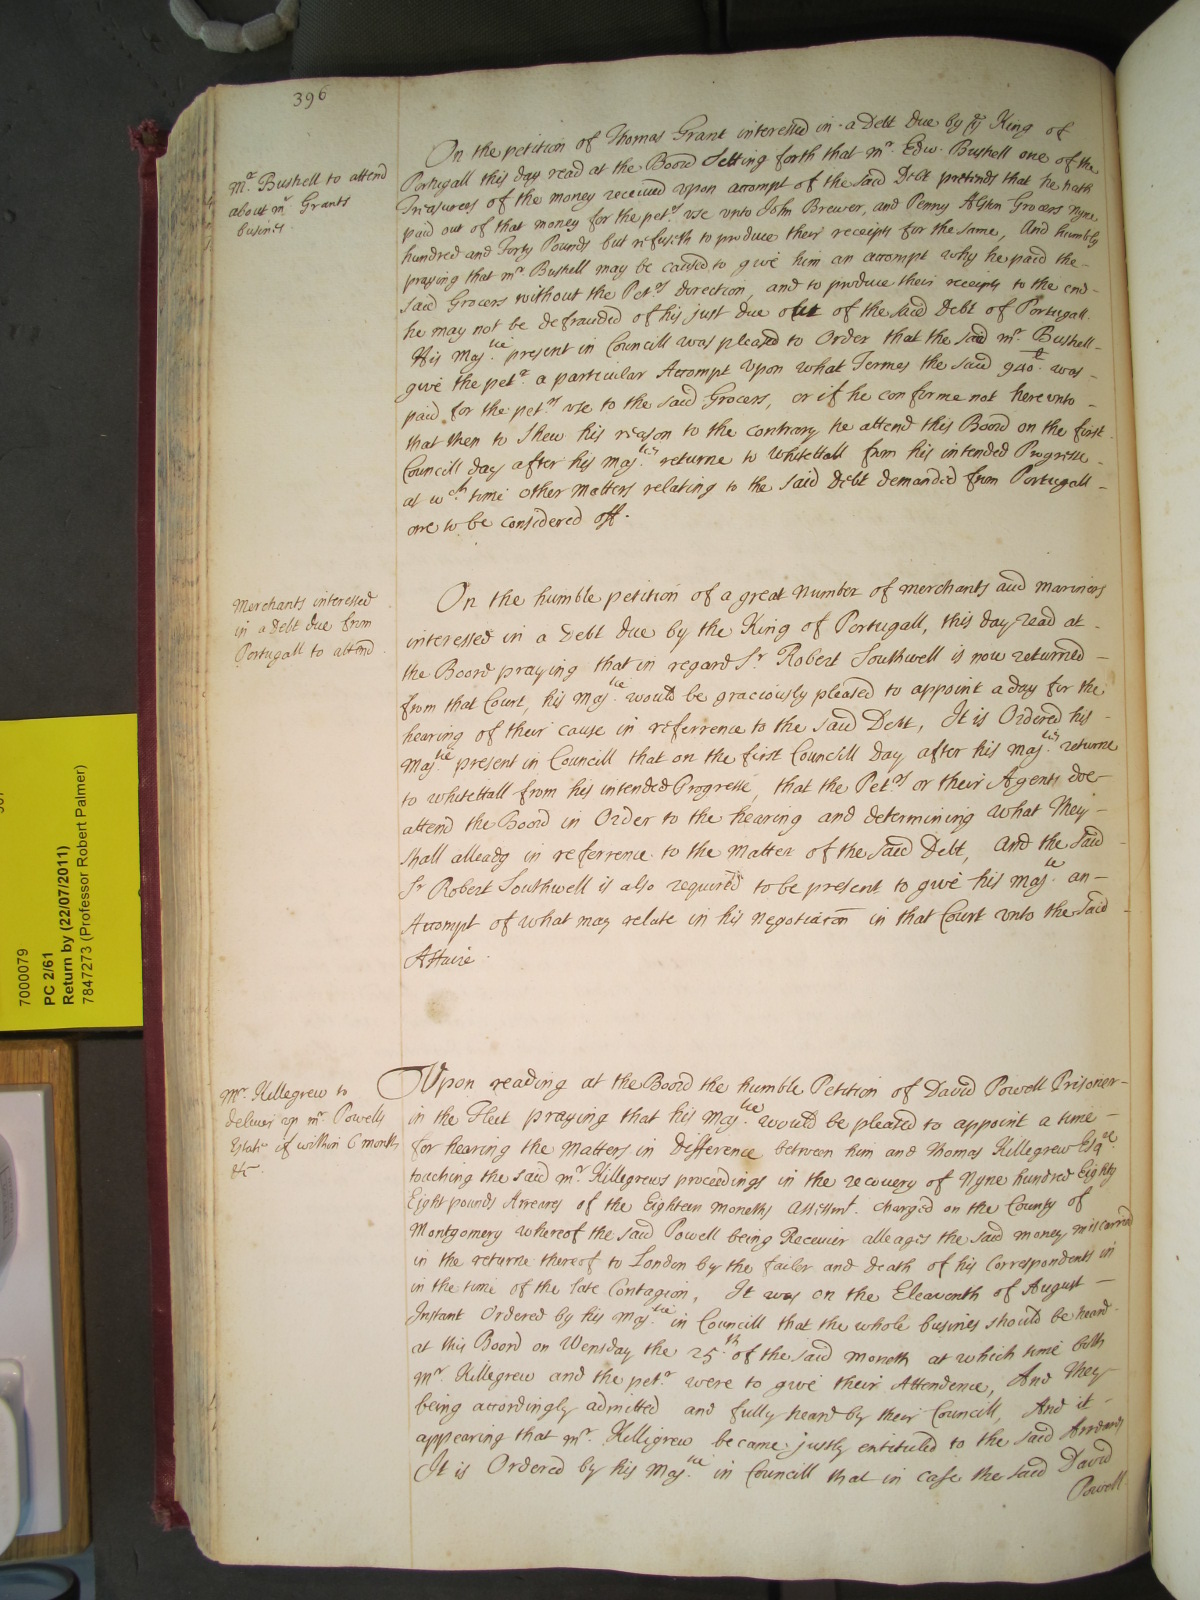 396
Mr. Bushell to attend
about mr. Grants
busines
On the petition of Thomas Grant interessed in a Debt due by ye King of
Portugall this day read at the Board Setting forth that mr. Edw. Bushell one of the
Treasurers of the money received vpon accompt of the said Debt pretends that he hath
paid out of that money for the petrs. vse vnto John Brewer, and Penny Alston Grocers Nyne
hundred and Forty Pounds but refuseth to produce their receipts for the same, And humbly
praying that mr. Bushell may be caused to give him an accompt why he paid the
said Grocers without the Petrs. direction, and to produce their receipts to the end
he may not be defrauded of his just due out of the said Debt of Portugall.
His Majtie. present in Councill was pleased to Order that the said mr. Bushell
give the petr. a particular Accompt Vpon what Termes the said 940£. was
paid for the petrs. vse to the said Grocers, or if he conforme not herevnto
that then to Shew his reason to the contrary he attend this Board on the first
Councill day after his Majties. returne to Whitehall from his intended Progresse
at wch. time other Matters relating to the said Debt demanded from Portugall
are to be considered off.
Merchants interessed
in a Debt due from
Portugall to attend
On the humble petition of a great Number of merchants and mariners
interessed in a Debt due by the King of Portugall, this day read at
the Board praying that in regard Sr. Robert Southwell is now returned
from that Court, his Majtie. would be graciously pleased to appoint a day for the
hearing of their cause in referrence to the said Debt, It is Ordered his
Majtie. present in Councill that on the first Councill day after his Majties. returne
to Whitehall from his intended Progresse, that the Petrs. or their Agents doe
attend the Board in Order to the hearing and determining what they
shall alleadg in referrence to the Matter of the said Debt, And the said
Sr. Robert Southwell is also required to be present to give his Majtie. an
Accompt of what may relate in his Negotiacon in that Court vnto the said
Affaire.
Mr. Killegrew to
deliver up mr. Powells
Estate if within 6 month
&c.
Vpon reading at the Board the humble Petition of David Powell Prisoner
in the Fleet praying that his Majtie. would be pleased to appoint a time
for hearing the Matters in difference between him and Thomas Killegrew Esqre.
touching the said mr. Killegrews proceedings in the recovery of Nyne hundred Eighty
Eight pounds Arreares of the Eighteen Moneths Assessmt. charged on the County of
Montgomery whereof the said Powell being Receiver alleages the said money miscarried
in the returne thereof to London by the failer and death of his Correspondents in
in the time of the late Contagion, It was on the Eleaventh of August
Instant Ordered by his Majtie. in Councill that the whole busines should be heard
at this Board on Wensday the 25th. of the said Moneth at which time both
mr. Killegrew and the petr. were to give their Attendence, And they
being accordingly admitted and fully heard by their Councill, And it
appearing that mr. Killigrew became justly entituled to the said Arreares
It is Ordered by his Majtie. in Councill that in case the said David
Powell
7000079
PC 2/61
Return by (22/07/2011)
7847273 (Professor Robert Palmer)